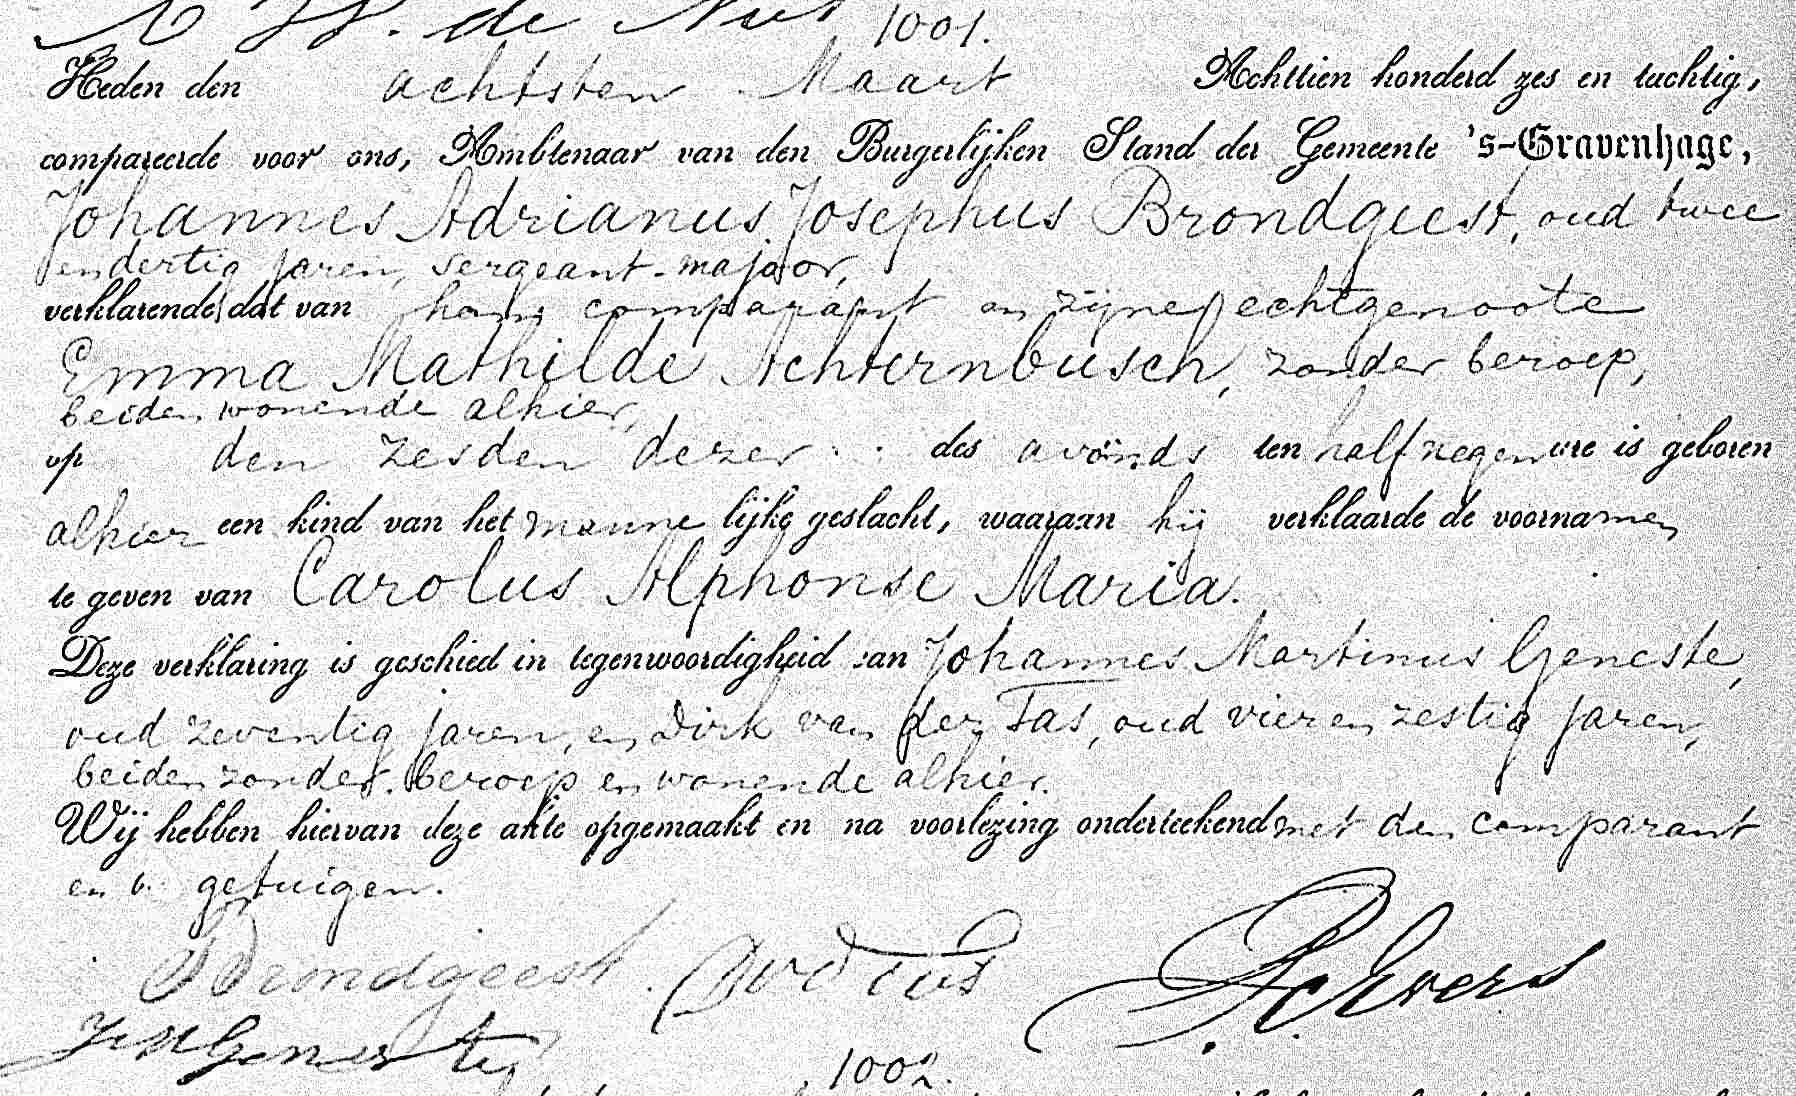 de
1001.
Heden den achtsten Maart Achttien honderd zes en tachtig,
compareerde voor ons, Ambtenaar van den Burgerlijken Stand der Gemeente 's-Gravenhage,
Johannes Adrianus Josephus Brondgeest, oud twee
endertig jaren, sergeant-majoor,
verklarende dat van hem comparant en zijne echtgenoote
Emma Mathilde Achternbusch, zonder beroep,
beiden wonende alhier,
op den zesden dezer des avonds ten half negen ure is geboren
alhier een kind van het manne lijke geslacht, waaraan hij verklaarde de voornamen
te geven van Carolus Alphonse Maria.
Deze verklaring is geschied in tegenwoordigheid van Johannes Martinus Geneste,
oud zeventig jaren, en Dirk van der Tas, oud vier en zestig jaren,
beiden zonder beroep en wonende alhier.
Wij hebben hiervan deze akte opgemaakt en na voorlezing onderteekend met den comparant
en de getuigen.
Brondgeest.
JM Geneste
1002.